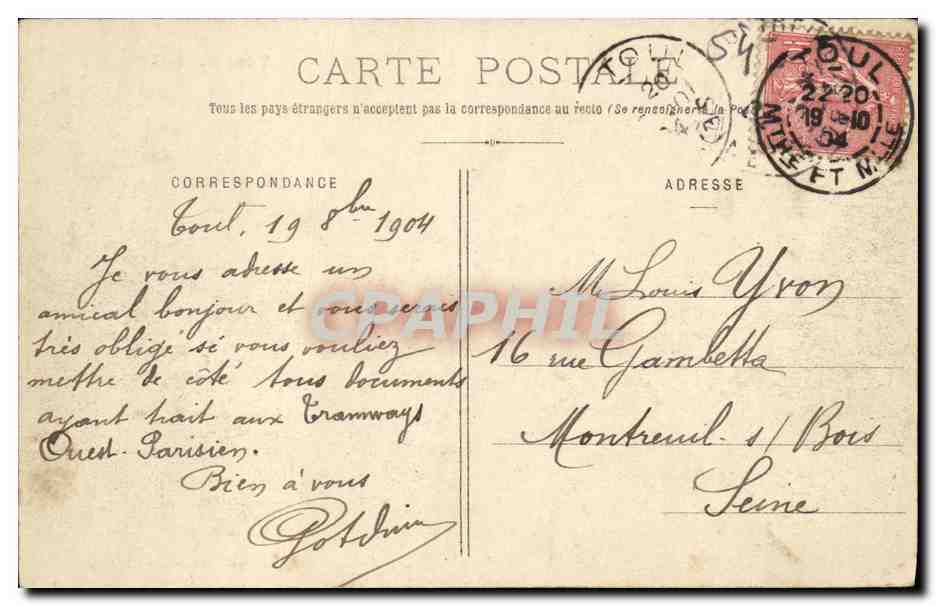 CARTE POSTALE
Tous les pays étrangers n'acceptent pas la correspondance au recto (Se renseigner à la Poste)
CORRESPONDANCE
Toul, 19 8bre 1904
Je vous adresse un
amical bonjour et vous serais
très obligé si vous vouliez
mettre de côté tous documents
ayant trait aux Tramways
Ouest-Parisien.
Bien à vous
ADRESSE
M. Louis Yvon
16 rue Gambetta
Montreuil s/ Bois
Seine
54
TOUL
20
TOUL
22-20
19 -10
04
MTHE ET MLLE
CPAPHIL